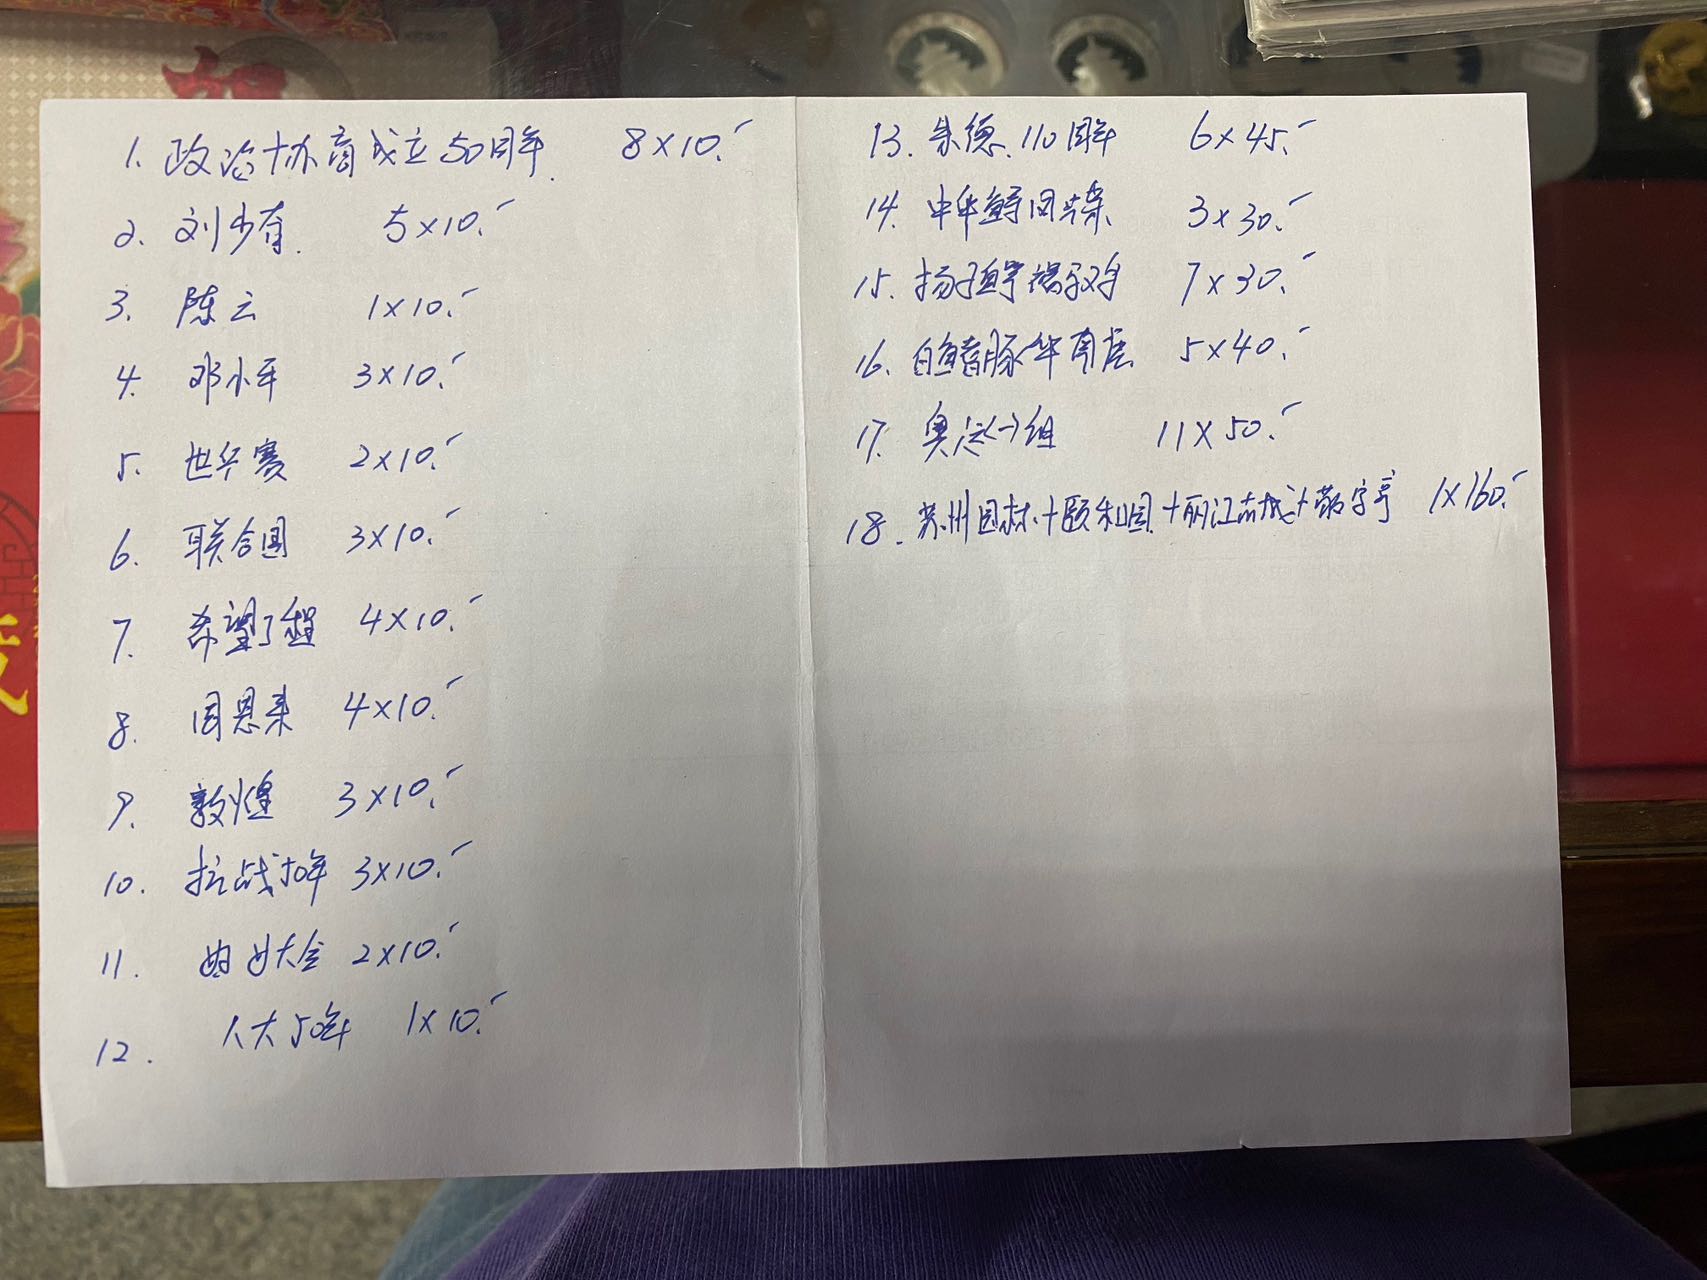 1. 政治协商成立50周年. 8×10.
2. 刘少奇. 5×10.
3. 陈云 1×10.
4. 邓小平 3×10.
5. 世乒赛 2×10.
6. 联合国 3×10.
7. 希望工程 4×10.
8. 周恩来 4×10.
9. 敦煌 3×10.
10. 抗战 3×10.
11. 妇女大会 2×10.
12. 人大50年 1×10.
13. 朱德.110周年 6×45.
14. 中华鲟 3×30.
15. 扬子鳄褐马鸡 7×30.
16. 白鳍豚华南虎 5×40.
17. 奥运(一)组 11×50.
18. 苏州园林+颐和园+丽江古城+ 1×160.